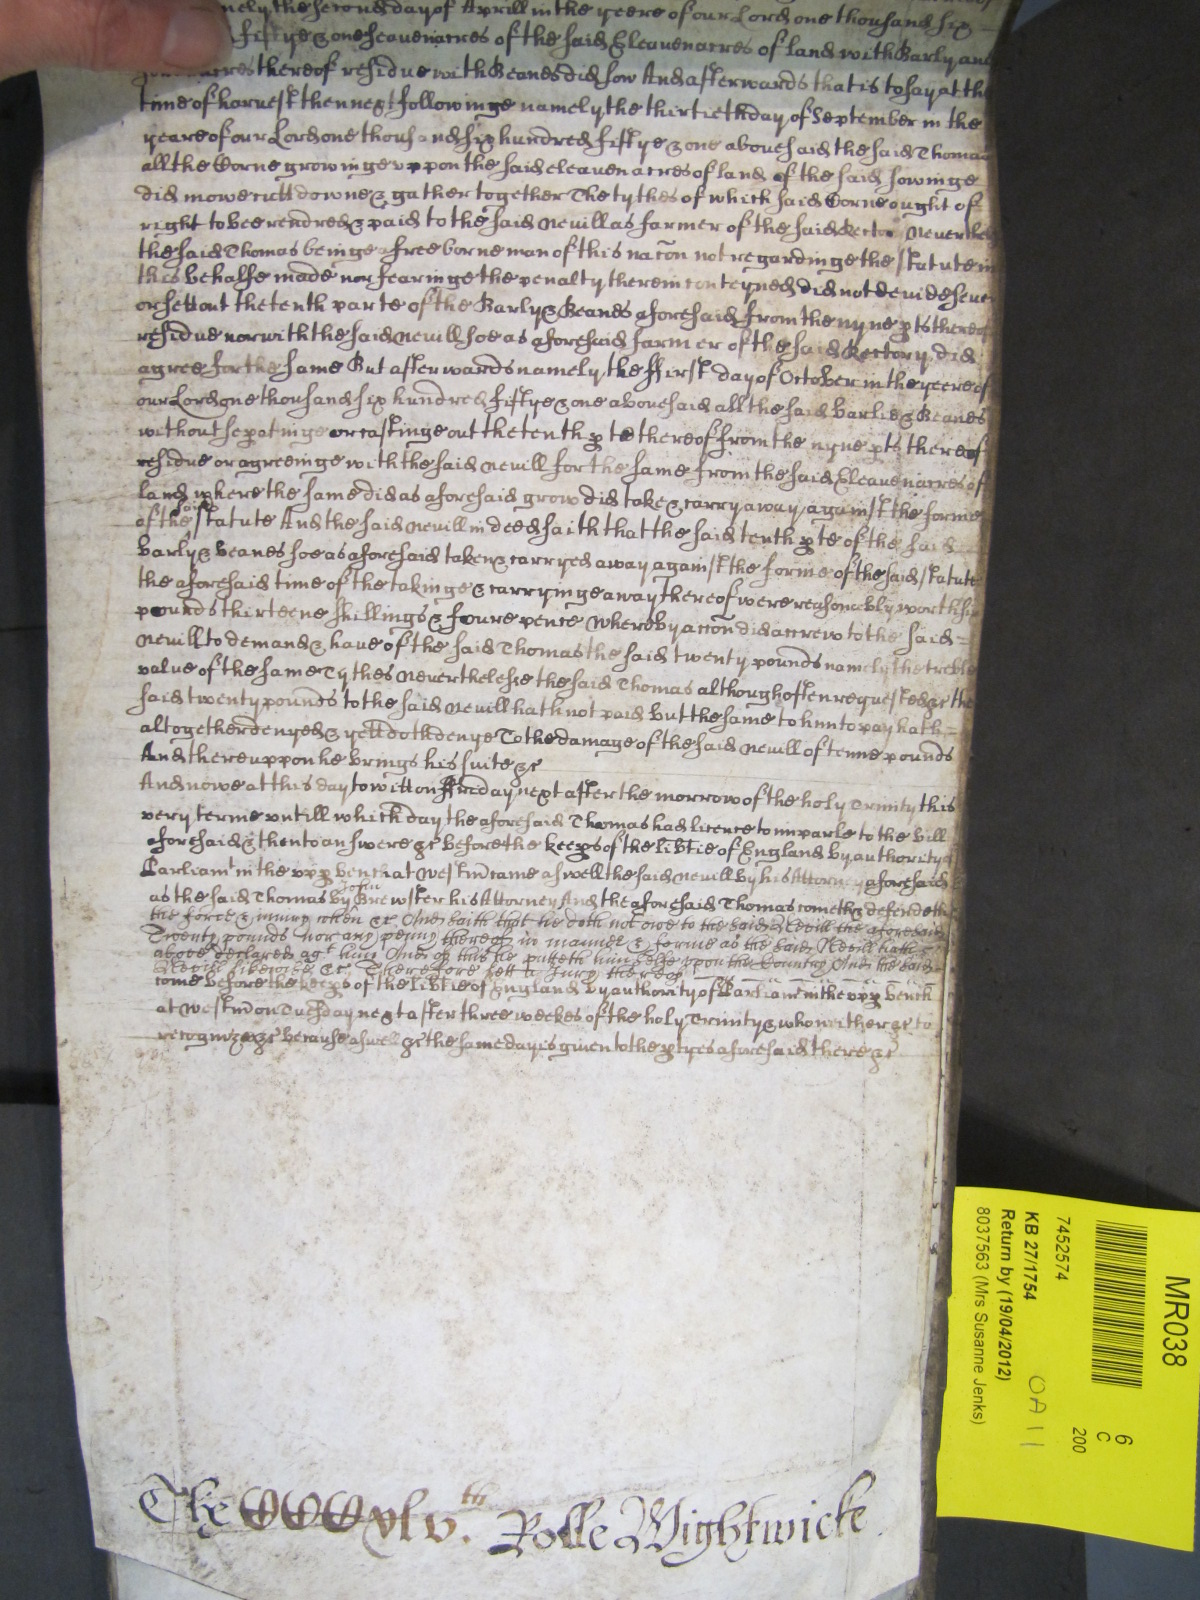 namely the second day of Aprill in the yeere of our Lord one thousand six
fiftye & one seauen acres of the said Eleauen acres of land with Barly and
acres thereof residue with Beanes did sow And afterwards that is to say at the
time of harvest then next followinge namely the thirtieth day of September in the
yeare of our Lord one thousand six hundred fiftye & one abovesaid the said Thomas
all the Corne growinge vppon the said eleauen acres of land of the said sowinge
did mowe cutt downe & gather together The tythes of which said Corne ought of
right to bee rendred & paid to the said Nevill as farmer of the said Rectory Neverthe
the said Thomas beinge a free borne man of this nacon not regardinge the statute in
this behalfe made nor fearinge the penalty therein conteyned did not devide sever
or sett out the tenth parte of the Barly & Beanes aforesaid from the nyne pts thereof
residue nor with the said Nevill soe as aforesaid farmer of the said Rectory did
agree for the same But afterwards namely the ffirst day of October in the yeere of
our Lord one thousand six hundred fiftye & one abovesaid all the said barlie & Beanes
without sepatinge or castinge out the tenth pte thereof from the nyne pts thereof
residue or agreeinge with the said Nevill for the same from the said Eleauen acres of
land where the same did as aforesaid grow did take & carry away against the forme
of the said statute And the said Nevill in deed saith that the said tenth pte of the said
barly & beanes soe as aforesaid taken & carryed away against the forme of the said statute
the aforesaid time of the takinge & carryinge away thereof were reasonebly worth six
pounds thirteene shillings & foure pence Whereby acon did accrew to the said
Nevill to demand & haue of the said Thomas the said twenty pounds namely the treble
value of the same Tythes Neverthelesse the said Thomas although often requested &c the
said twenty pounds to the said Nevill hath not paid but the same to him to pay hath
altogether denyed & yett doth denye To the damage of the said Nevill of tenne pounds
And thereuppon he brings his suite &c
And nowe at this day to witt on ffriday next after the morrow of the holy Trinity this
very terme vntill which day the aforesaid Thomas had licence to imparle to the bill
aforesaid & then to answere &c before the keeps of the libtie of England by authority of
Parliamt in the vpp bench at Westm came aswell the said Nevill by his Attorney aforesaid
as the said Thomas by John Brewster his Attorney And the aforesaid Thomas cometh & defendeth
the force & iniury when &c And saith that he doth not owe to the said Nevill the aforesaid
Twenty pounds nor any penny thereof in manner & forme as the said Nevill hath
above declared agt him And of this he putteth himselfe vpon the Country And the said
Nevill likewise &c Therefore lett a Jury thereof
come before the keeps of the libtie of England by authority of Parliamt in the vpp bench
at Westm on Tuesday next after three weekes of the holy Trinity & who neither &c to
recognize &c because aswell &c the same day is given to the ptyes aforesaid there &c
The CCCxlv.th Rolle Wightwicke
MR038
6
C
200
7452574
KB 27/1754
Return by (19/04/2012)
8037563 (Mrs Susanne Jenks)
OA 11